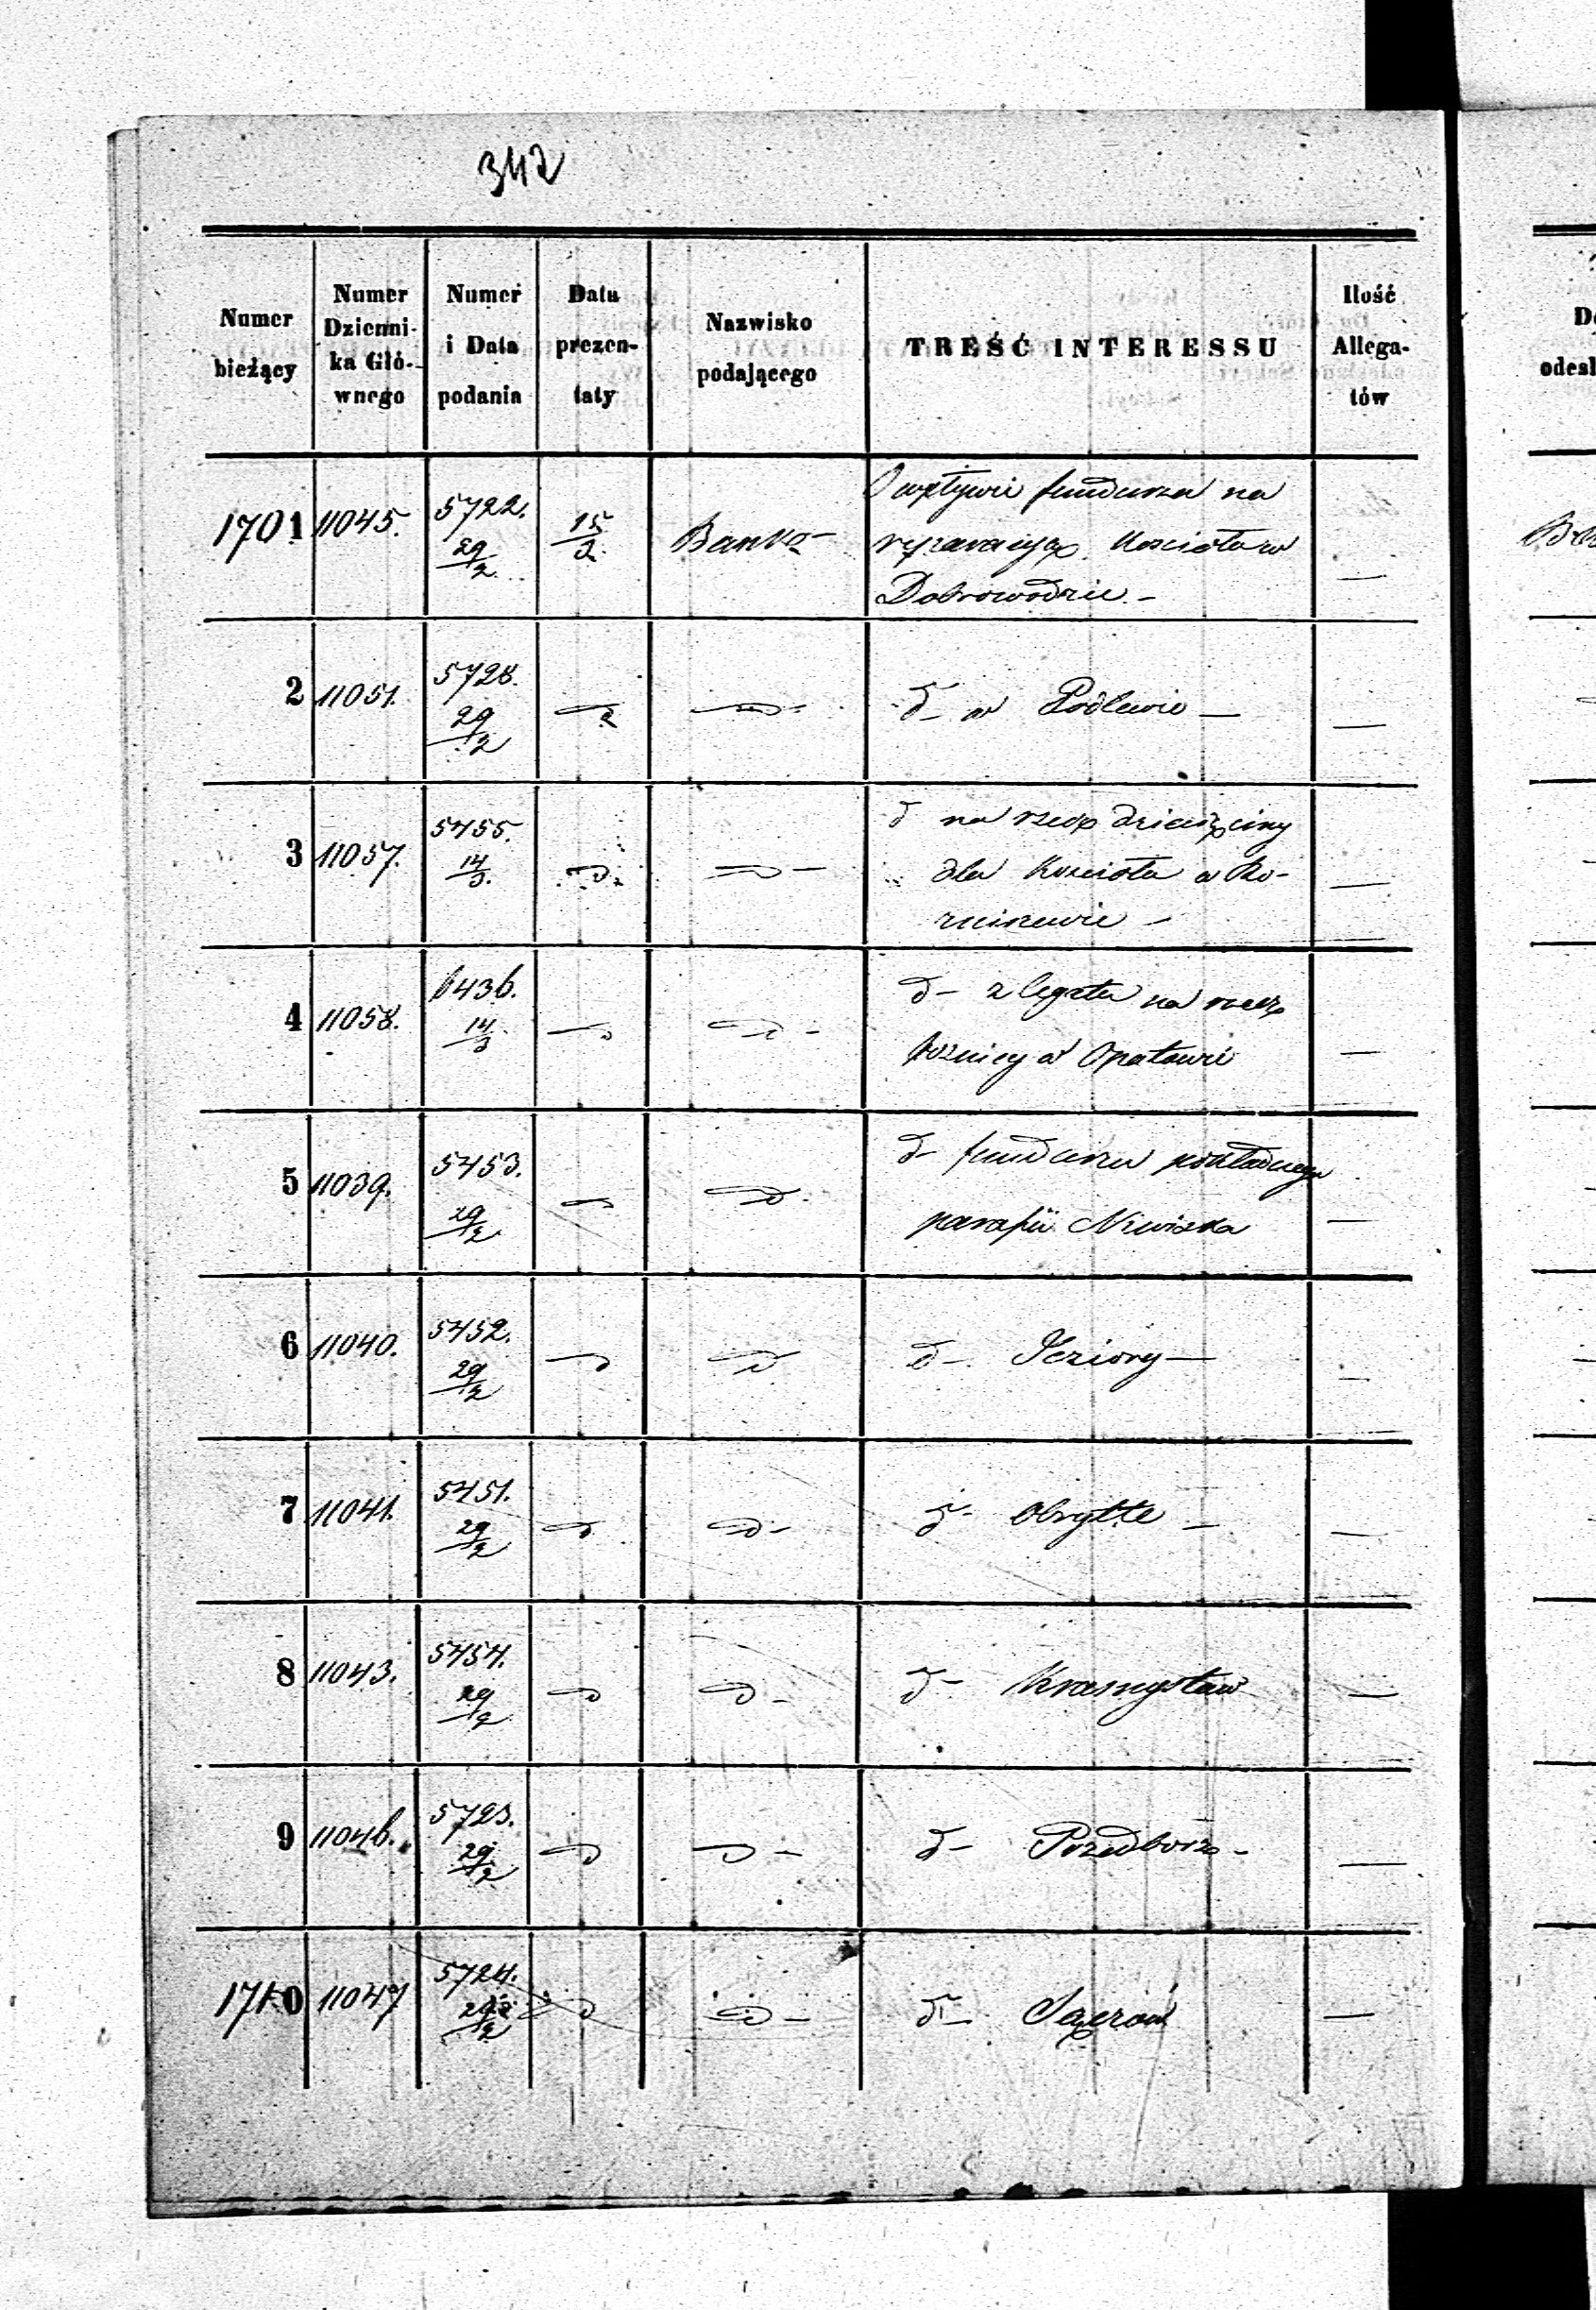 342
Numer bieżący | Numer Dziennika Głównego | Numer i Data podania | Data prezentaty | Nazwisko podającego | TREŚĆ INTERESSU | Ilość Allegatów
1701 | 11045. | 5722. 29/2 | 15/3 | Bank | O wpływie funduszu na
reparacyą Kościoła w
Dobrowodzie. —
2 | 11051. | 5728. 29/2 | d | d | d— w —
3 | 11057. | 5455. 14/3 | d | d — | d na rzecz dziesięciny
dla Kościoła w
4 | 11058. | 6436. 14/3 | d | d — | d— z legatu na rzecz
bożnicy w Opatowie
5 | 11039. | 5453. 29/2 | d | d | d— funduszu pokładnego
parafii Niwiska
6 | 11040. | 5452. 29/2 | d | d | d— Jeziory —
7 | 11041. | 5451. 29/2 | d | d — | d— Obrytte —
8 | 11043. | 5454. 29/2 | d | d — | d— Krasnystaw —
9 | 11046. | 5723. 29/2 | d | d — | d— Przedborz — —
1710 | 11047 | 5724. 29/2 | d | d — | d— —